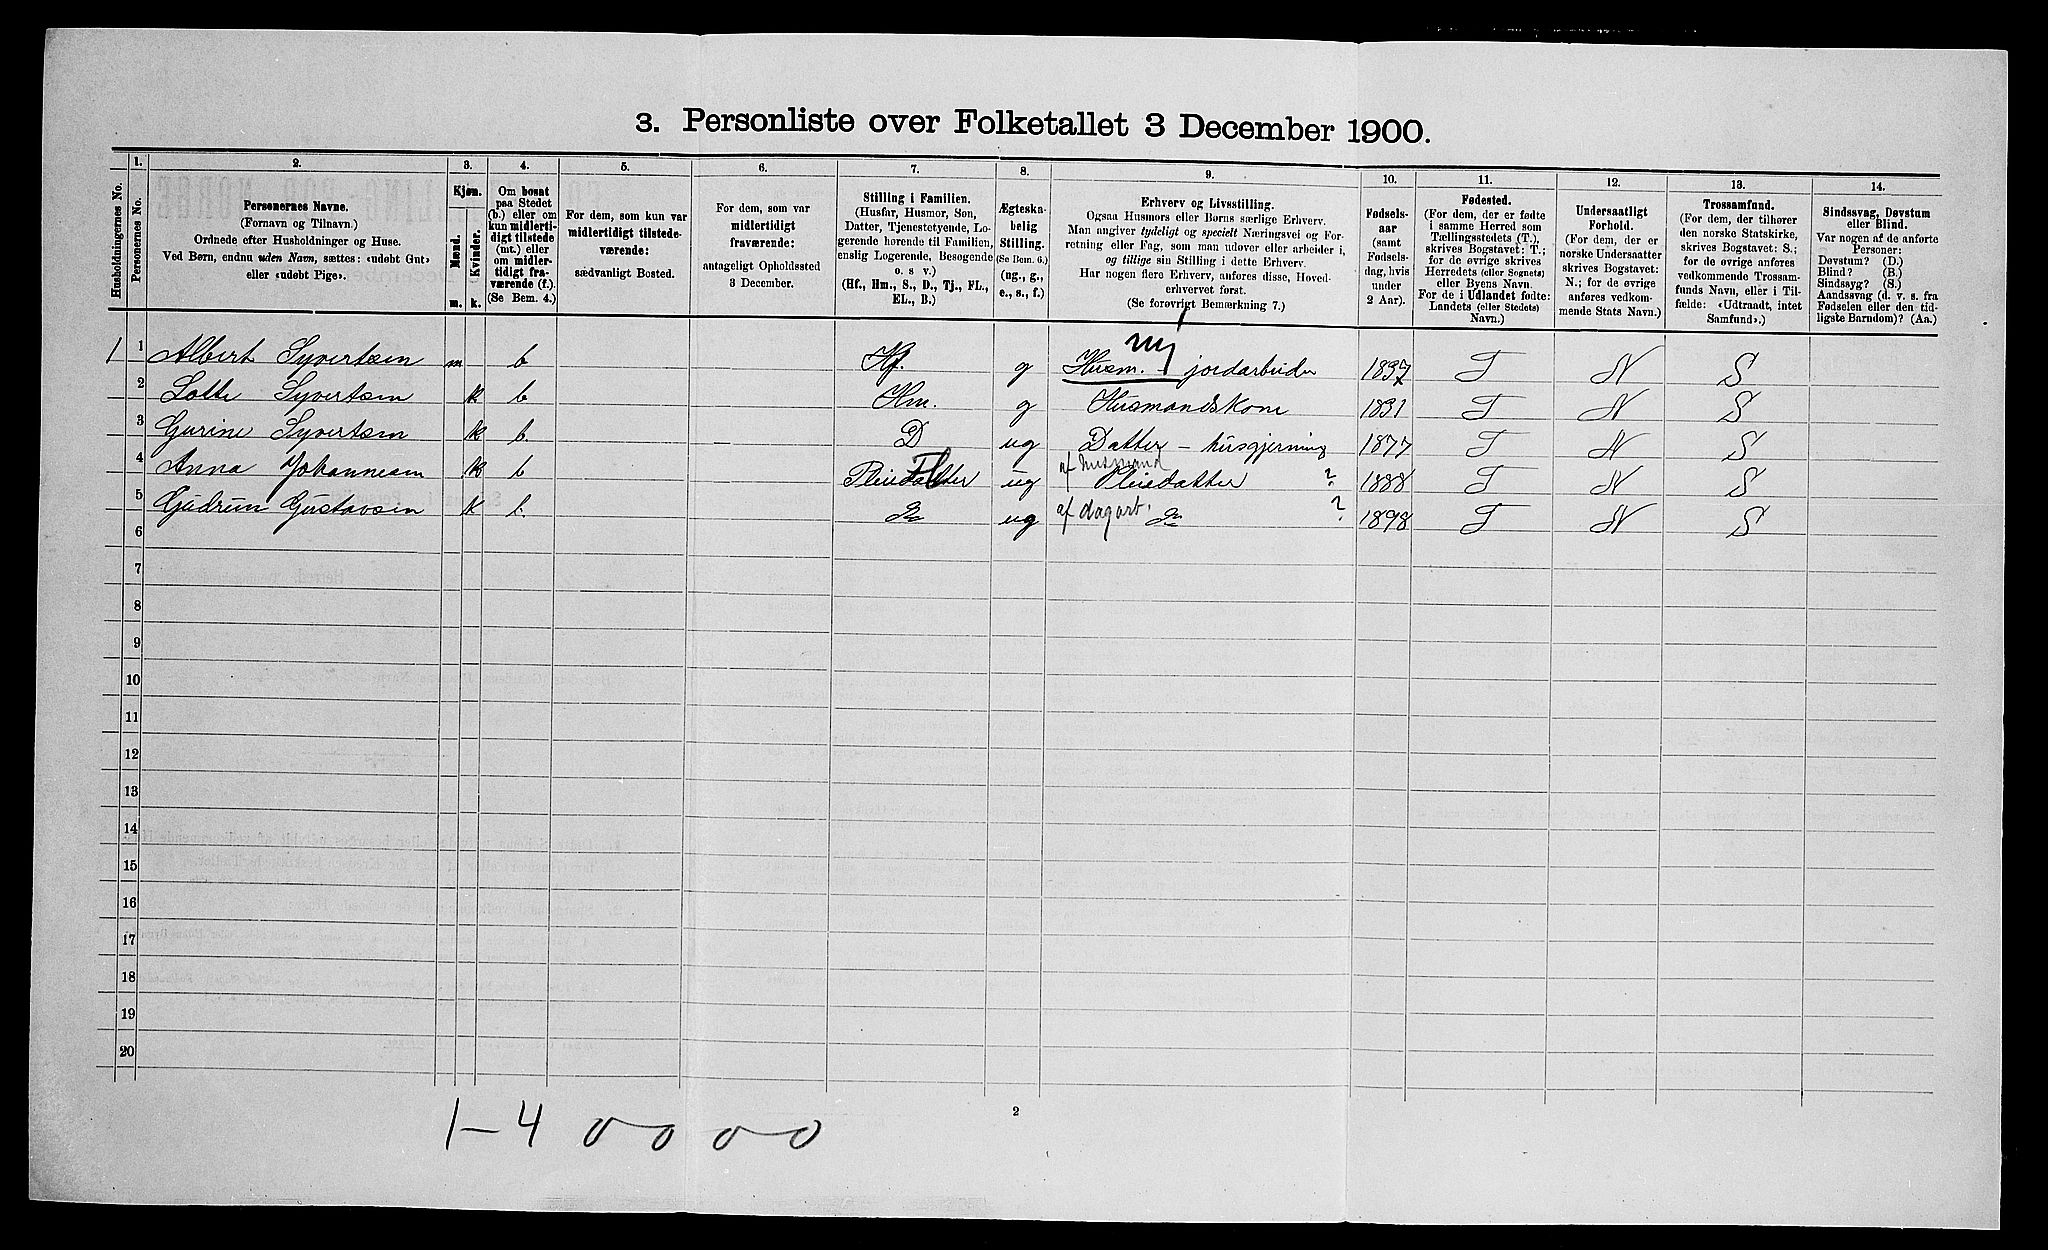 3. Personliste over Folketallet 3 December 1900.
Husholdningernes No.
1. Personernes No.
2. Personernes Navne. (Fornavn og Tilnavn.) Ordnede efter Husholdninger og Huse. Ved Børn, endnu uden Navn, sættes: «udøbt Gut» eller «udøbt Pige».
3. Kjøn. Mænd. m. Kvinder. k.
4. Om bosat paa Stedet (b.) eller om kun midlertidigt tilstede (mt.) eller om midlertidigt fraværende (f.). (Se Bem. 4.)
5. For dem, som kun var midlertidigt tilstedeværende: sædvanligt Bosted.
6. For dem, som var midlertidigt fraværende: antageligt Opholdssted 3 December.
7. Stilling i Familien. (Husfar, Husmor, Søn, Datter, Tjenestetyende, Logerende hørende til Familien, enslig Logerende, Besøgende o. s v.) (Hf., Hm., S., D., Tj., FL., EL., B.)
8. Ægteskabelig Stilling. (Se Bem. 6.) (ug., g., e., s., f.)
9. Erhverv og Livsstilling. Ogsaa Husmors eller Børns særlige Erhverv. Man angiver tydeligt og specielt Næringsvei og Forretning eller Fag, som man udøver eller arbeider i, og tillige sin Stilling i dette Erhverv. Har nogen flere Erhverv, anføres disse, Hovederhvervet først. (Se forøvrigt Bemærkning 7.)
10. Fødselsaar (samt Fødselsdag, hvis under 2 Aar).
11. Fødested. (For dem, der er fødte i samme Herred som Tællingsstedets (T.), skrives Bogstavet: T.; for de øvrige skrives Herredets (eller Sognets) eller Byens Navn. For de i Udlandet fødte: Landets (eller Stedets) Navn.)
12. Undersaatligt Forhold. (For dem, der er norske Undersaatter skrives Bogstavet: N.; for de øvrige anføres vedkommende Stats Navn.)
13. Trossamfund. (For dem, der tilhører den norske Statskirke, skrives Bogstavet: S.; for de øvrige anføres vedkommende Trossamfunds Navn, eller i Tilfælde: «Udtraadt, intet Samfund».)
14. Sindssvag, Døvstum eller Blind. Var nogen af de anførte Personer: Døvstum? (D.) Blind? (B.) Sindssyg? (S.) Aandssvag (d. v. s. fra Fødselen eller den tidligste Barndom)? (Aa.)
1 1 Albert Syvertsen m b Hf. g Husm. - jordarbeider 1837 T N S
2 Lotte Syvertsen k b Hm. g Husmandskone 1831 T N S
3 Gurine Syvertsen k b D ug Datter - husgjerning 1877 T N S
4 Anna Johannesen k b Pleiedatter ug af husmand Pleiedatter ? 1888 T N S
5 Gudrun Gustavsen k b. ug af dagarb. ? 1898 T N S
6
7
8
9
10
11
12
13
14
15
16
17
18
19
20
1-4 0 0 0 0
2